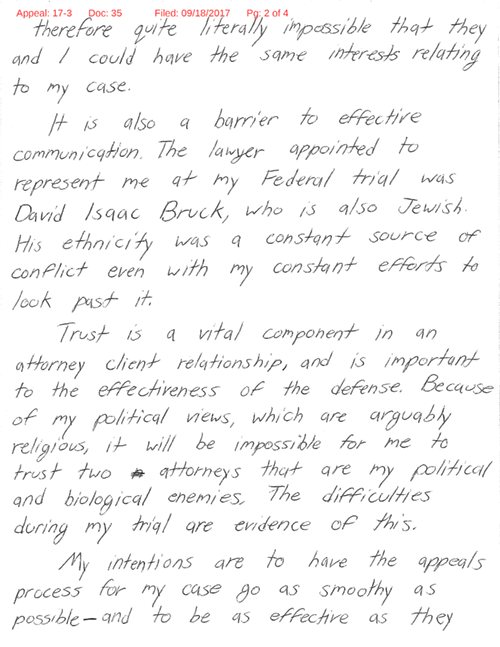 Appeal: 17-3 Doc: 35 Filed: 09/18/2017 Pg: 2 of 4
therefore quite literally impossible that they
and I could have the same interests relating
to my case.
It is also a barrier to effective
communication. The lawyer appointed to
represent me at my Federal trial was
David Isaac Bruck, who is also Jewish.
His ethnicity was a constant source of
conflict even with my constant efforts to
look past it.
Trust is a vital component in an
attorney client relationship, and is important
to the effectiveness of the defense. Because
of my political views, which are arguably
religious, it will be impossible for me to
trust two attorneys that are my political
and biological enemies. The difficulties
during my trial are evidence of this.
My intentions are to have the appeals
process for my case go as smoothy as
possible - and to be as effective as they